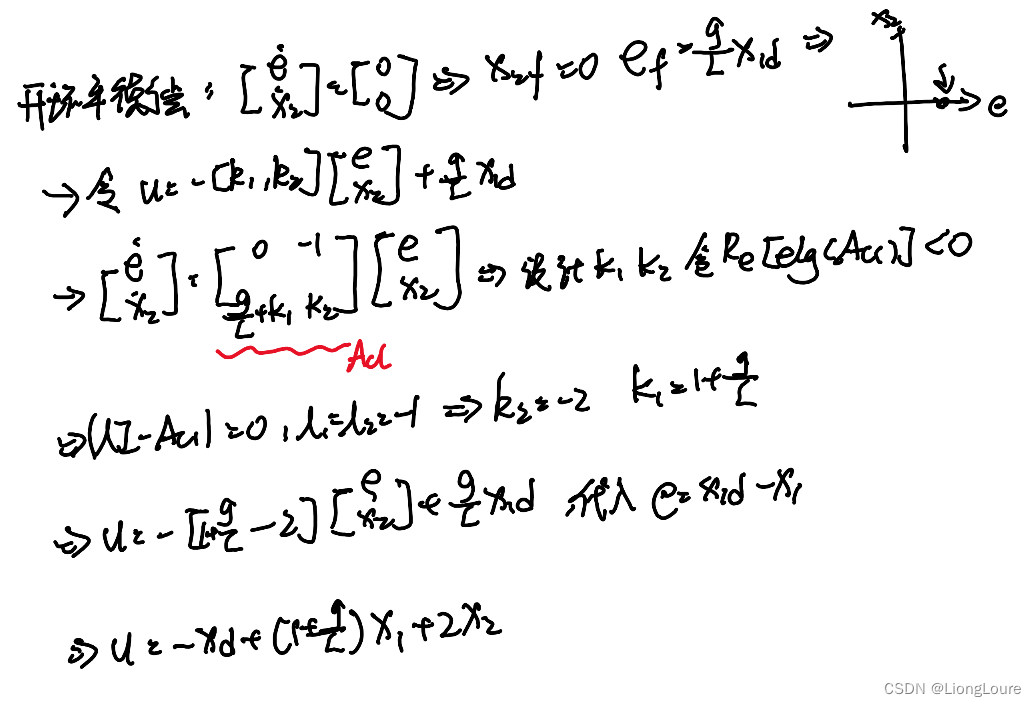 开环平衡点: [ė ẋ₂] = [0 0] ⇒ x₂f = 0 e_f = g/L x₁d ⇒
x₂
e
→ 令 u = -[k₁, k₂] [e x₂] + g/L x₁d
→ [ė ẋ₂] = [0 -1 g/L+k₁ k₂] [e x₂] ⇒ 设计 k₁ k₂ 令 Re[eig(Acl)] < 0
Acl
⇒ |λI - Acl| = 0, λ₁=λ₂=-1 ⇒ k₂ = -2 k₁ = 1+g/L
⇒ u = -[1+g/L -2] [e x₂] + g/L x₁d 代入 e = x₁d - x₁
⇒ u = -xd + (1+g/L) x₁ + 2x₂
CSDN @LiongLoure